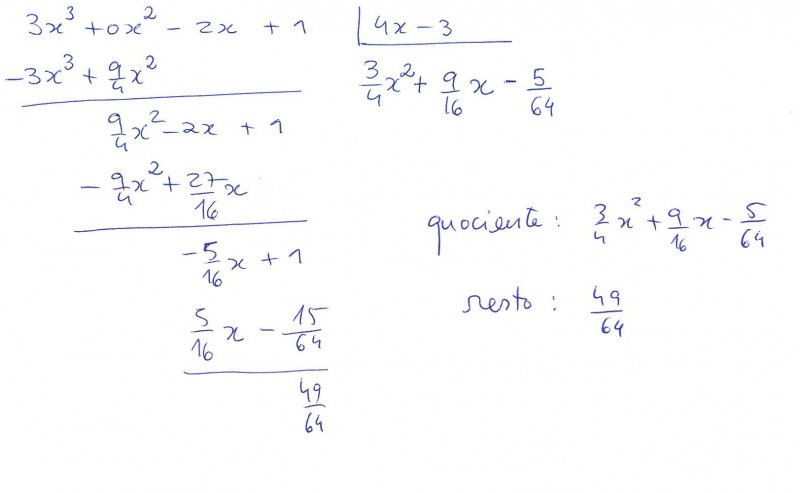 3x³ + 0x² - 2x + 1 | 4x - 3
-3x³ + 9/4 x²
3/4 x² + 9/16 x - 5/64
9/4 x² - 2x + 1
- 9/4 x² + 27/16 x
- 5/16 x + 1
5/16 x - 15/64
49/64
quociente : 3/4 x² + 9/16 x - 5/64
resto : 49/64